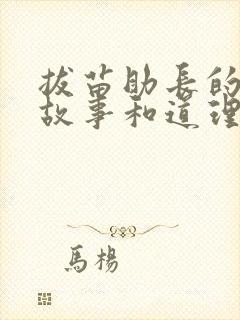 拔苗助長的
故事和道理
馬楊